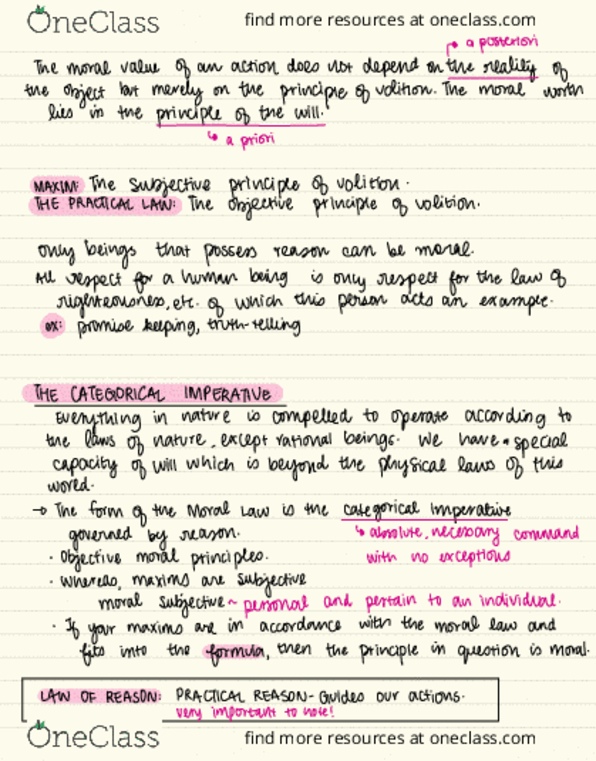 OneClass find more resources at oneclass.com
a posteriori
The moral value of an action does not depend on the reality of
the object but merely on the principle of volition. The moral worth
lies in the principle of the will.
a priori
MAXIM: The subjective principle of volition.
THE PRACTICAL LAW: The objective principle of volition.
only beings that possess reason can be moral.
All respect for a human being is only respect for the law of
righteousness, etc. of which this person acts an example.
ex: promise keeping, truth-telling
THE CATEGORICAL IMPERATIVE
Everything in nature is compelled to operate according to
the laws of nature, except rational beings. We have a special
capacity of will which is beyond the physical laws of this
wored.
→ The form of the Moral Law is the categorical imperative
governed by reason.
↳ absolute, necessary command
with no exceptions
· Objective moral principles.
· Whereas, maxims are subjective
moral subjective ~ personal and pertain to an individual.
· If your maxims are in accordance with the moral law and
fits into the formula, then the principle in question is moral.
LAW OF REASON: PRACTICAL REASON - Guides our actions.
very important to note!
OneClass find more resources at oneclass.com